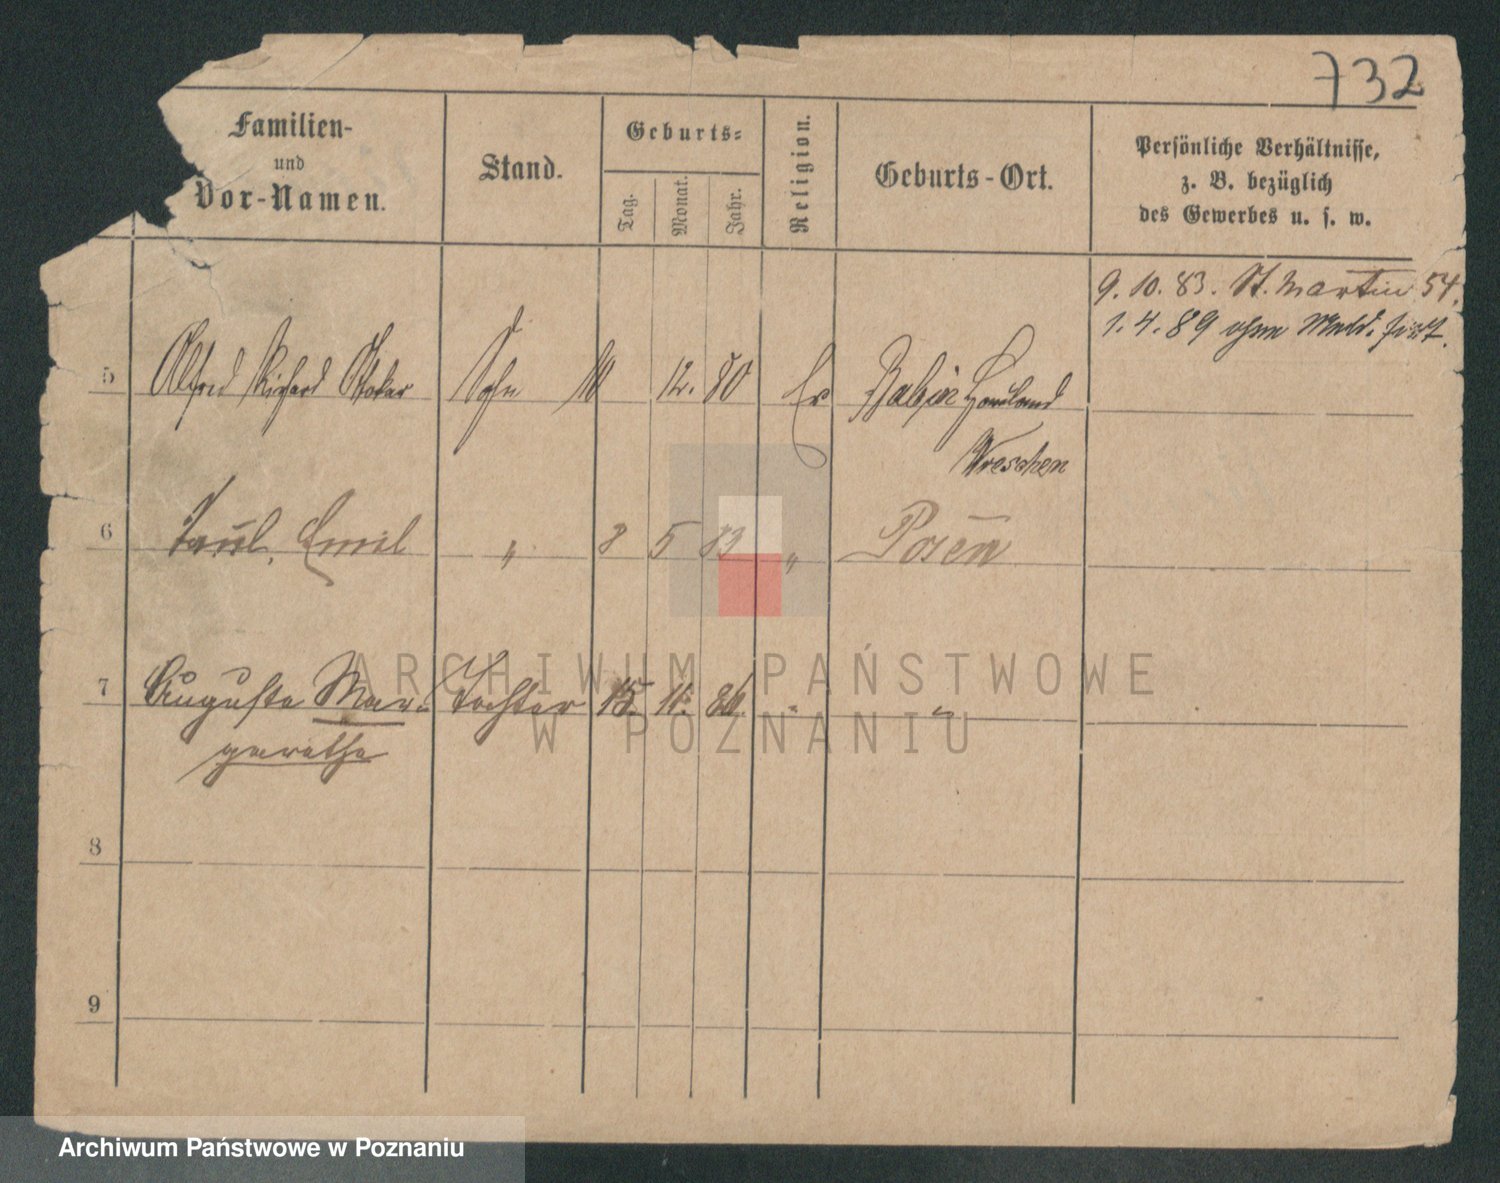 732
Familien-
und
Vor-Namen.
Stand.
Geburts-
Tag.
Monat.
Jahr.
Religion.
Geburts-Ort.
Persönliche Verhältnisse,
z. B. bezüglich
des Gewerbes u. s. w.
9. 10. 83. St. Martin 54.
1. 4. 89 ohne Meld. fort.
5 Alfred Richard Sohn 12. 80 Ev Babin Hauland
Wreschen
6 Paul, Emil " 8 5 83 " Posen
7 Auguste Mar- Tochter 15. 11. 86. " "
garethe
8
9
ARCHIWUM PAŃSTWOWE
W POZNANIU
Archiwum Państwowe w Poznaniu